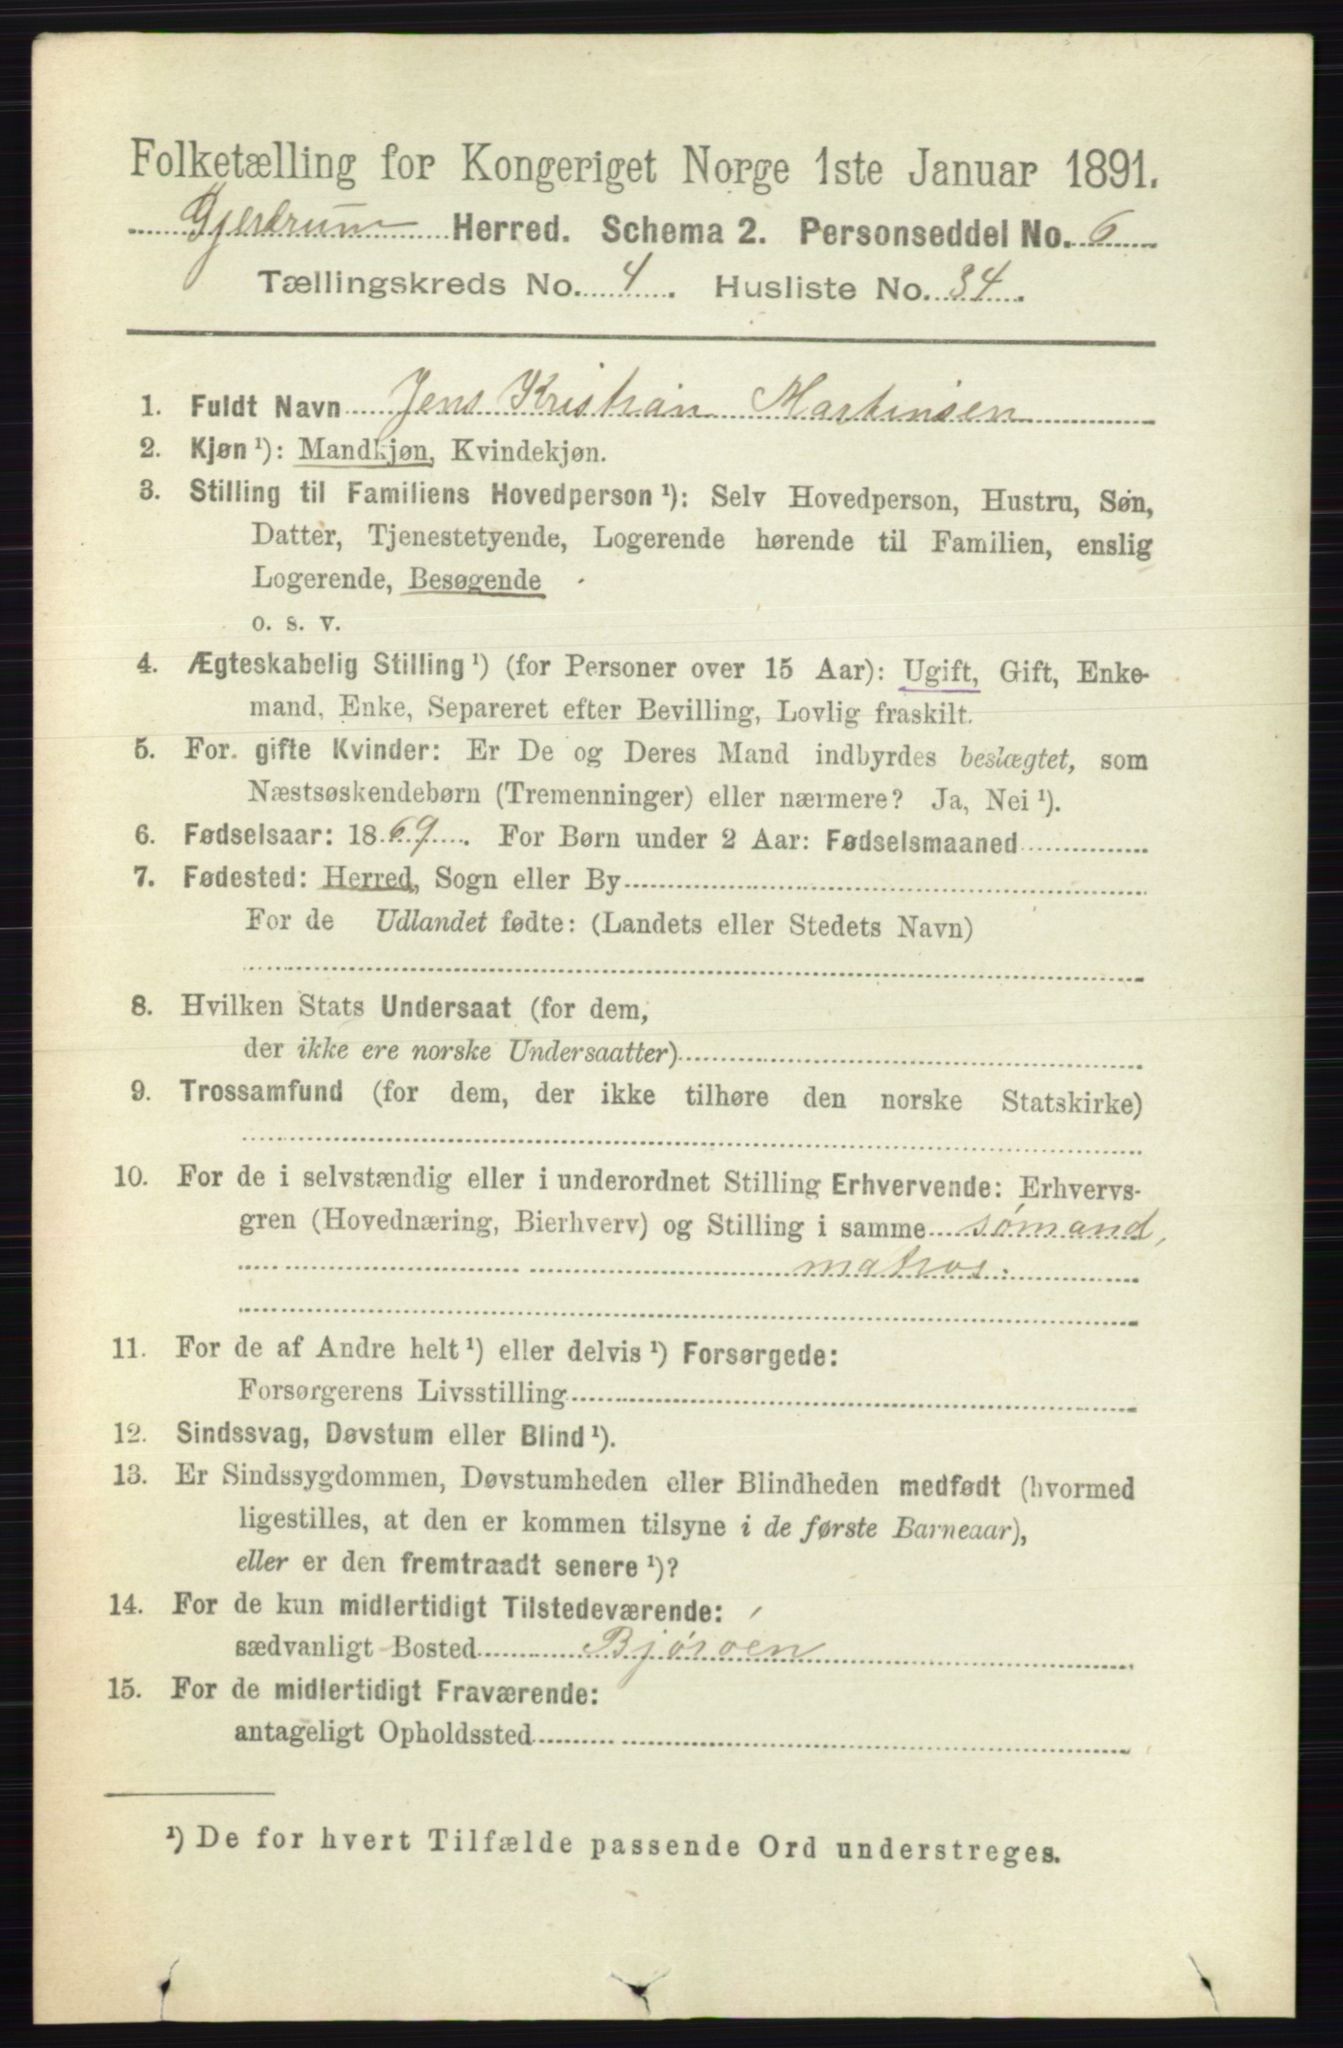 Folketælling for Kongeriget Norge 1ste Januar 1891.
Gjerdrum Herred. Schema 2. Personseddel No. 6
Tællingskreds No. 4. Husliste No. 34.
1. Fuldt Navn Jens Kristian Martinsen
2. Kjøn ¹): Mandkjøn, Kvindekjøn.
3. Stilling til Familiens Hovedperson ¹): Selv Hovedperson, Hustru, Søn,
Datter, Tjenestetyende, Logerende hørende til Familien, enslig
Logerende, Besøgende
o. s. v.
4. Ægteskabelig Stilling ¹) (for Personer over 15 Aar): Ugift, Gift, Enke-
mand, Enke, Separeret efter Bevilling, Lovlig fraskilt.
5. For gifte Kvinder: Er De og Deres Mand indbyrdes beslægtet, som
Næstsøskendebørn (Tremenninger) eller nærmere? Ja, Nei ¹).
6. Fødselsaar: 1869. For Børn under 2 Aar: Fødselsmaaned
7. Fødested: Herred, Sogn eller By
For de Udlandet fødte: (Landets eller Stedets Navn)
8. Hvilken Stats Undersaat (for dem,
der ikke ere norske Undersaatter)
9. Trossamfund (for dem, der ikke tilhøre den norske Statskirke)
10. For de i selvstændig eller i underordnet Stilling Erhvervende: Erhvervs-
gren (Hovednæring, Bierhverv) og Stilling i samme sømand,
matros.
11. For de af Andre helt ¹) eller delvis ¹) Forsørgede:
Forsørgerens Livsstilling
12. Sindssvag, Døvstum eller Blind ¹).
13. Er Sindssygdommen, Døvstumheden eller Blindheden medfødt (hvormed
ligestilles, at den er kommen tilsyne i de første Barneaar),
eller er den fremtraadt senere ¹)?
14. For de kun midlertidigt Tilstedeværende:
sædvanligt Bosted Bjøroen
15. For de midlertidigt Fraværende:
antageligt Opholdssted
¹) De for hvert Tilfælde passende Ord understreges.